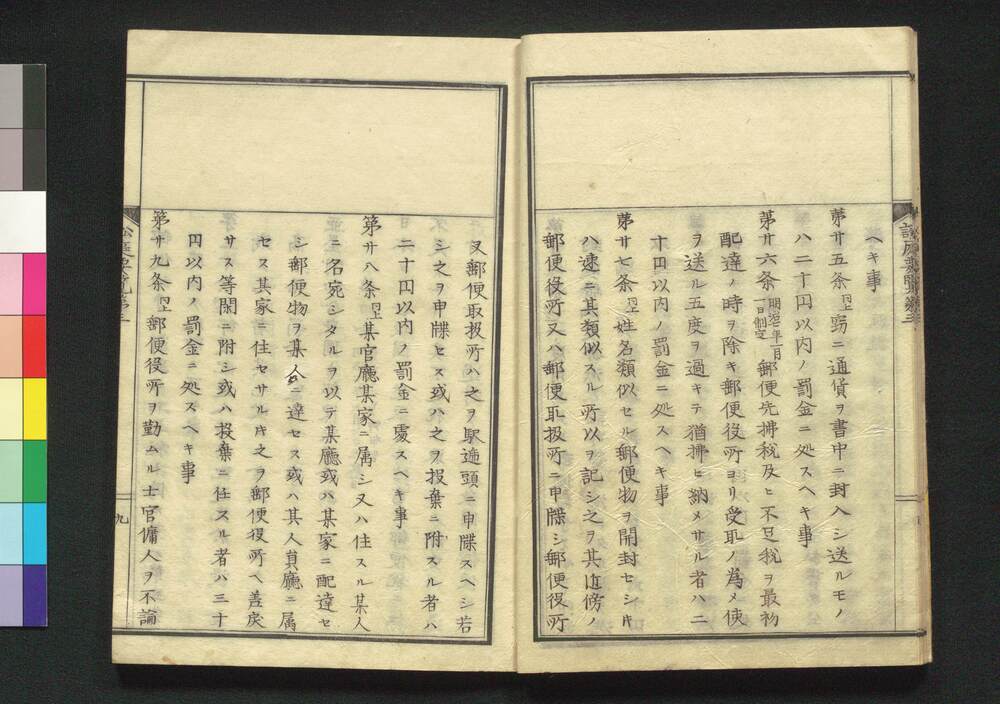 ヘキ事
第廿五条 同上 窃ニ通貨ヲ書中ニ封入シ送ルモノ
ハ二十円以内ノ罰金ニ処スヘキ事
第廿六条 明治六年二月一日制定 郵便先拂税及ヒ不足税ヲ最初
配達ノ時ヲ除キ郵便役所ヨリ受取ノ為メ使
ヲ送ル五度ヲ過キテ猶拂ヒ納メサル者ハ二
十円以内ノ罰金ニ処スヘキ事
第廿七条 同上 姓名類似セル郵便物ヲ開封セシ𪜈
ハ速ニ其類似スル所以ヲ記シ之ヲ其近傍ノ
郵便役所又ハ郵便取扱所ニ申牒シ郵便役所
又郵便取扱所ハ之ヲ駅逓頭ニ申牒スヘシ若
シ之ヲ申牒セス或ハ之ヲ投棄ニ附スル者ハ
二十円以内ノ罰金ニ處スヘキ事
第廿八条 同上 某官廳某家ニ属シ又ハ住スル某人
ニ名宛シタルヲ以テ某廳或ハ某家ニ配達セ
シ郵便物ヲ某人ニ達セス或ハ其人員廳ニ属
セス其家ニ住セサル𪜈之ヲ郵便役所ヘ差戻
サス等閑ニ附シ或ハ投棄ニ任スル者ハ三十
円以内ノ罰金ニ処スヘキ事
第廿九条 同上 郵便役所ヲ勤ムル士官傭人ヲ不論
九